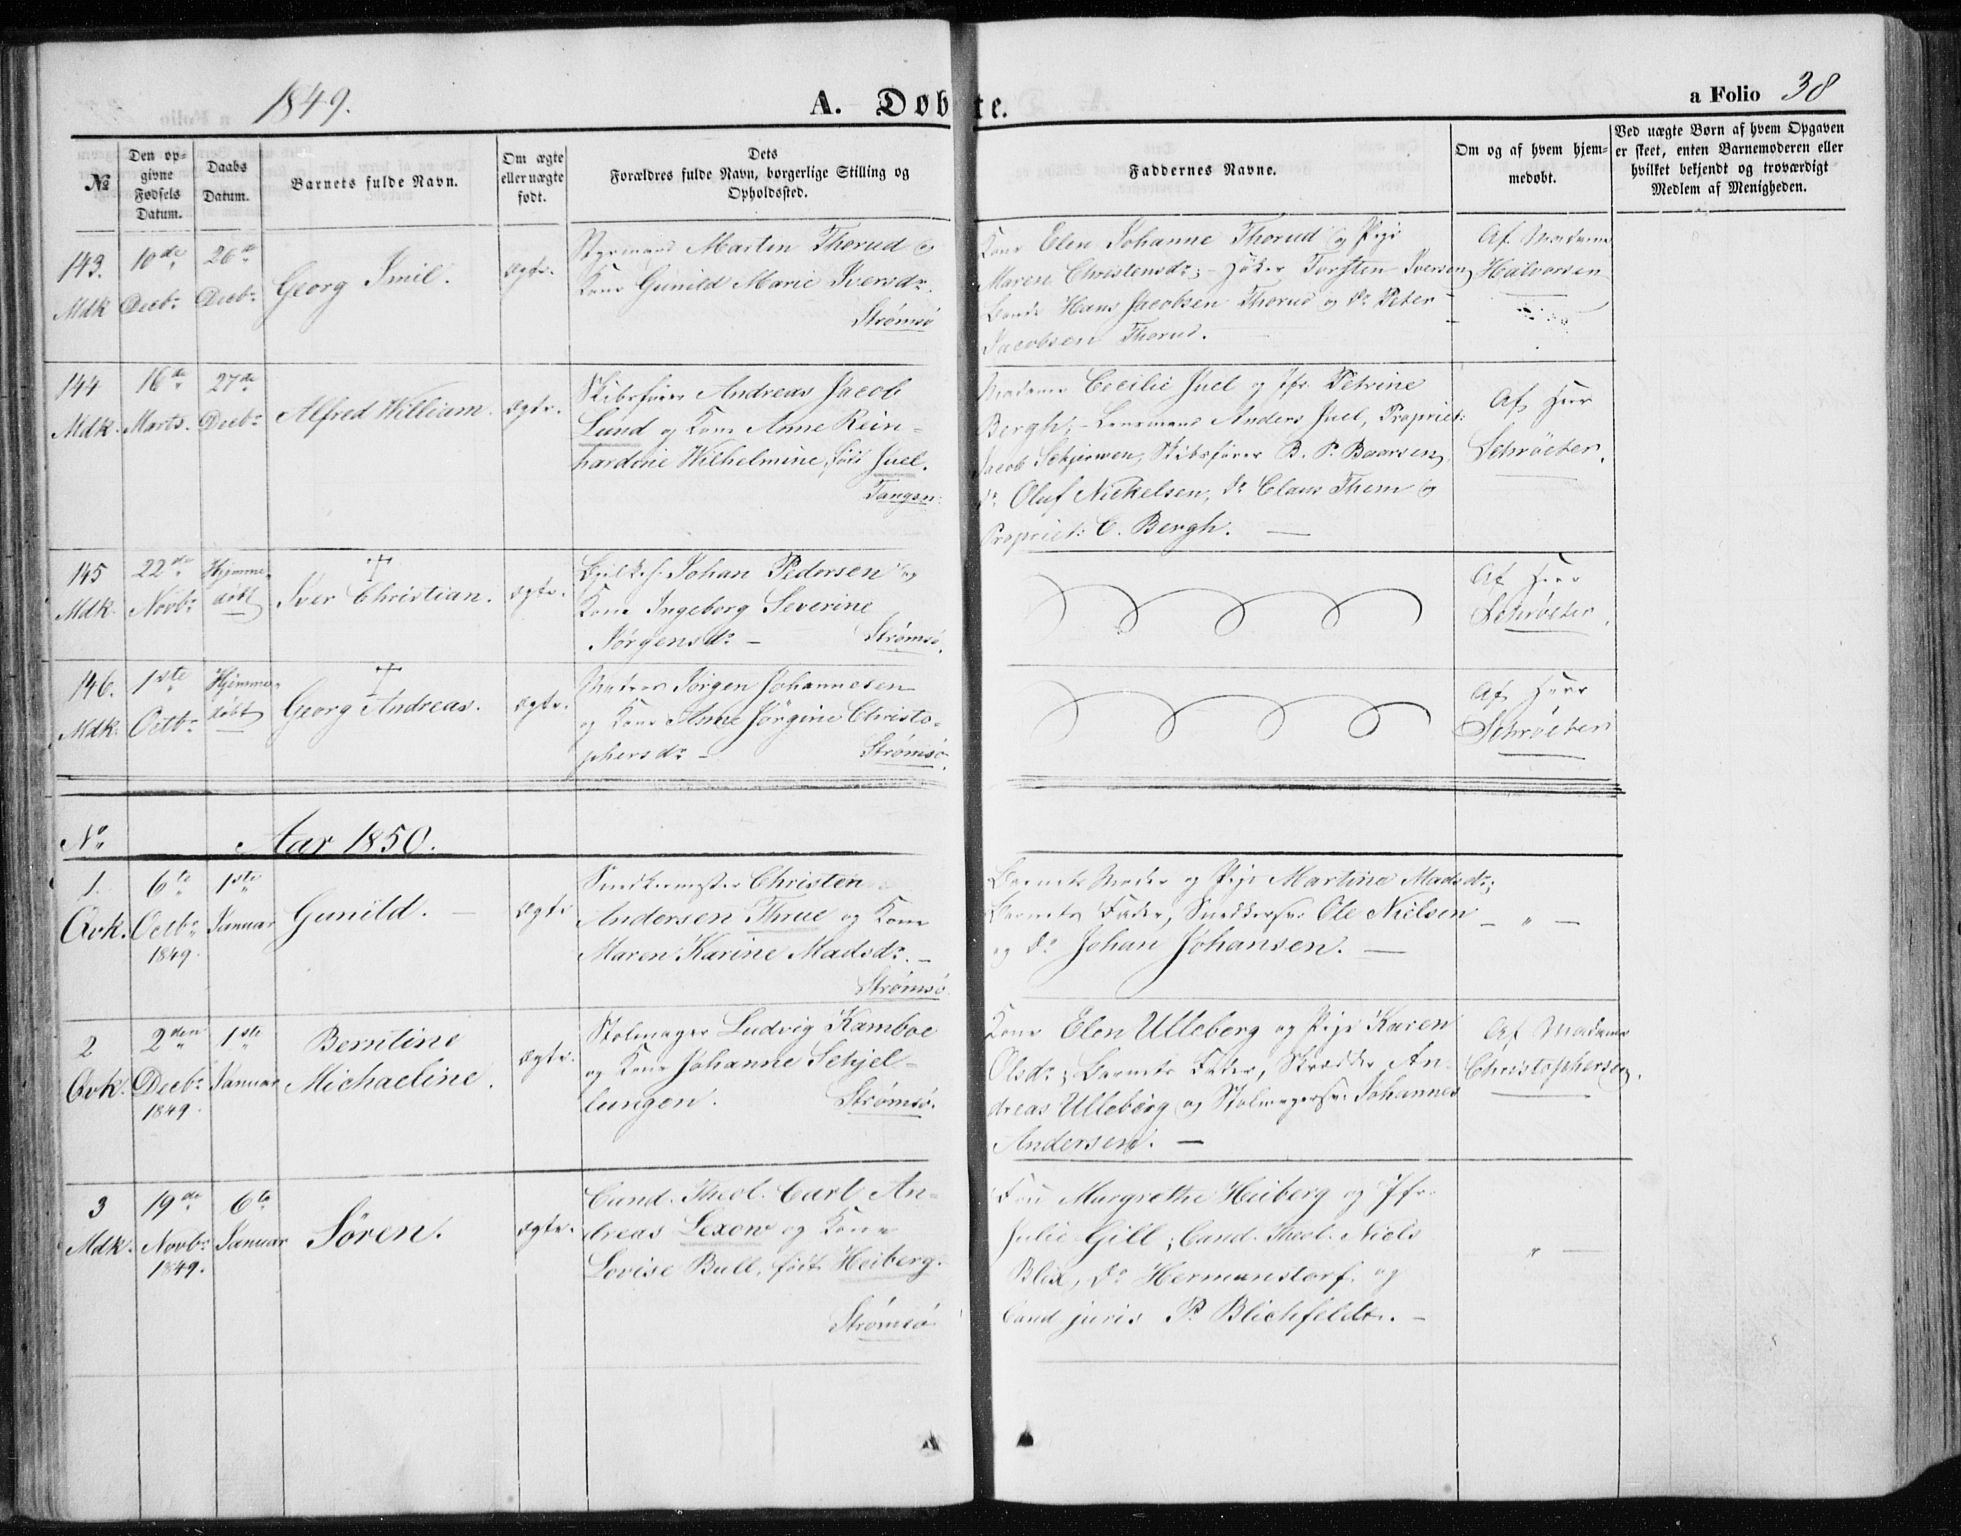 1849.
A. Døbte.
a Folio 38
№
Den opgivne Fødsels Datum.
Daabs Datum.
Barnets fulde Navn.
Om ægte eller uægte født.
Dets Forældres fulde Navn, borgerlige Stilling og Opholdssted.
Faddernes Navne.
Om og af hvem hjemmedøbt.
Ved uægte Børn af hvem Opgaven er skeet, enten Barnemoderen eller hvilket bekjendt og troværdigt Medlem af Menigheden.
143.
Mdk
10de
Decbr
26de
Decbr
Georg Imil.
ægte.
Styrmand Martin Thorud og
Kone Gunild Marie Iversdr.
Strømsø
Kone Elen Johanne Thorud og Pige
Maren Christensdr; - Høker Torsten Iversen
Bonde Hans Jacobsen Thorud og do Peter
Jacobsen Thorud.
Af Madame
Halvorsen
144
Mdk.
16de
Marts.
27de
Decbr
Alfred William.
ægte.
Skibsfører Andreas Jacob
Lund og Kone Anne Rein-
hardine Wilhelmine, født Juel.
Tangen.
Madame Cecilie Juel og Jfr. Petrine
Bergh; - Lensmand Anders Juel, Propriet:
Jacob Schiøwen, Skibsfører B. P. Baarsen,
do Oluf Nickelsen, do Claus Them og
Propriet: C. Bergh. —
Af Herr
Schrøeter.
145
Mdk.
22de
Novbr
Hjemme-
døbt
†
Iver Christian.
ægte.
Johan Pedersen og
Kone Ingeborg Severine
Jørgensdr - Strømsø.
Af Herr
Schrøeter.
146.
Mdk.
1ste
Octbr
Hjemme-
døbt
†
Georg Andreas.
ægte.
Matros Jørgen Johannesen
og Kone Anne Jørgine Christo-
phersdr - Strømsø.
Af Herr
Schrøeter
No
Aar 1850.
1.
Qvk.
6te
Octbr
1849.
1ste
Januar
Gunild. —
ægte
Snedkermester Christen
Andersen Thrue og Kone
Maren Karine Madsdr. —
Strømsø.
Barnets Moder og Pige Martine Madsdr;
Barnets Fader, Snedkersv. Ole Nielsen
og do Johan Johansen. —
— " —
2
Qvk.
2den
Decbr
1849.
1ste
Januar
Berntine
Michaeline.
ægte.
Stolmager Ludvig Kamboe
og Kone Johanne Schjel-
lungen. Strømsø.
Kone Elen Ulleborg og Pige Karen
Olsdr; Barnets Fader, Skrædder An-
dreas Ulleborg og Stolmagersv. Johannes
Andersen. —
Af Madame
Christophersen.
3
Mdk.
19de
Novbr
1849.
6te
Januar
Søren.
ægte.
Cand. Theol. Carl An-
dreas Lexow og Kone
Lovise Bull, født Heiberg.
Strømsø
Fru Margrethe Heiberg og Jfr.
Julie Gill; Cand. Theol. Niels
Blix, do Hermanstorf. og
Cand juris P. Blichfeldt. —
" —